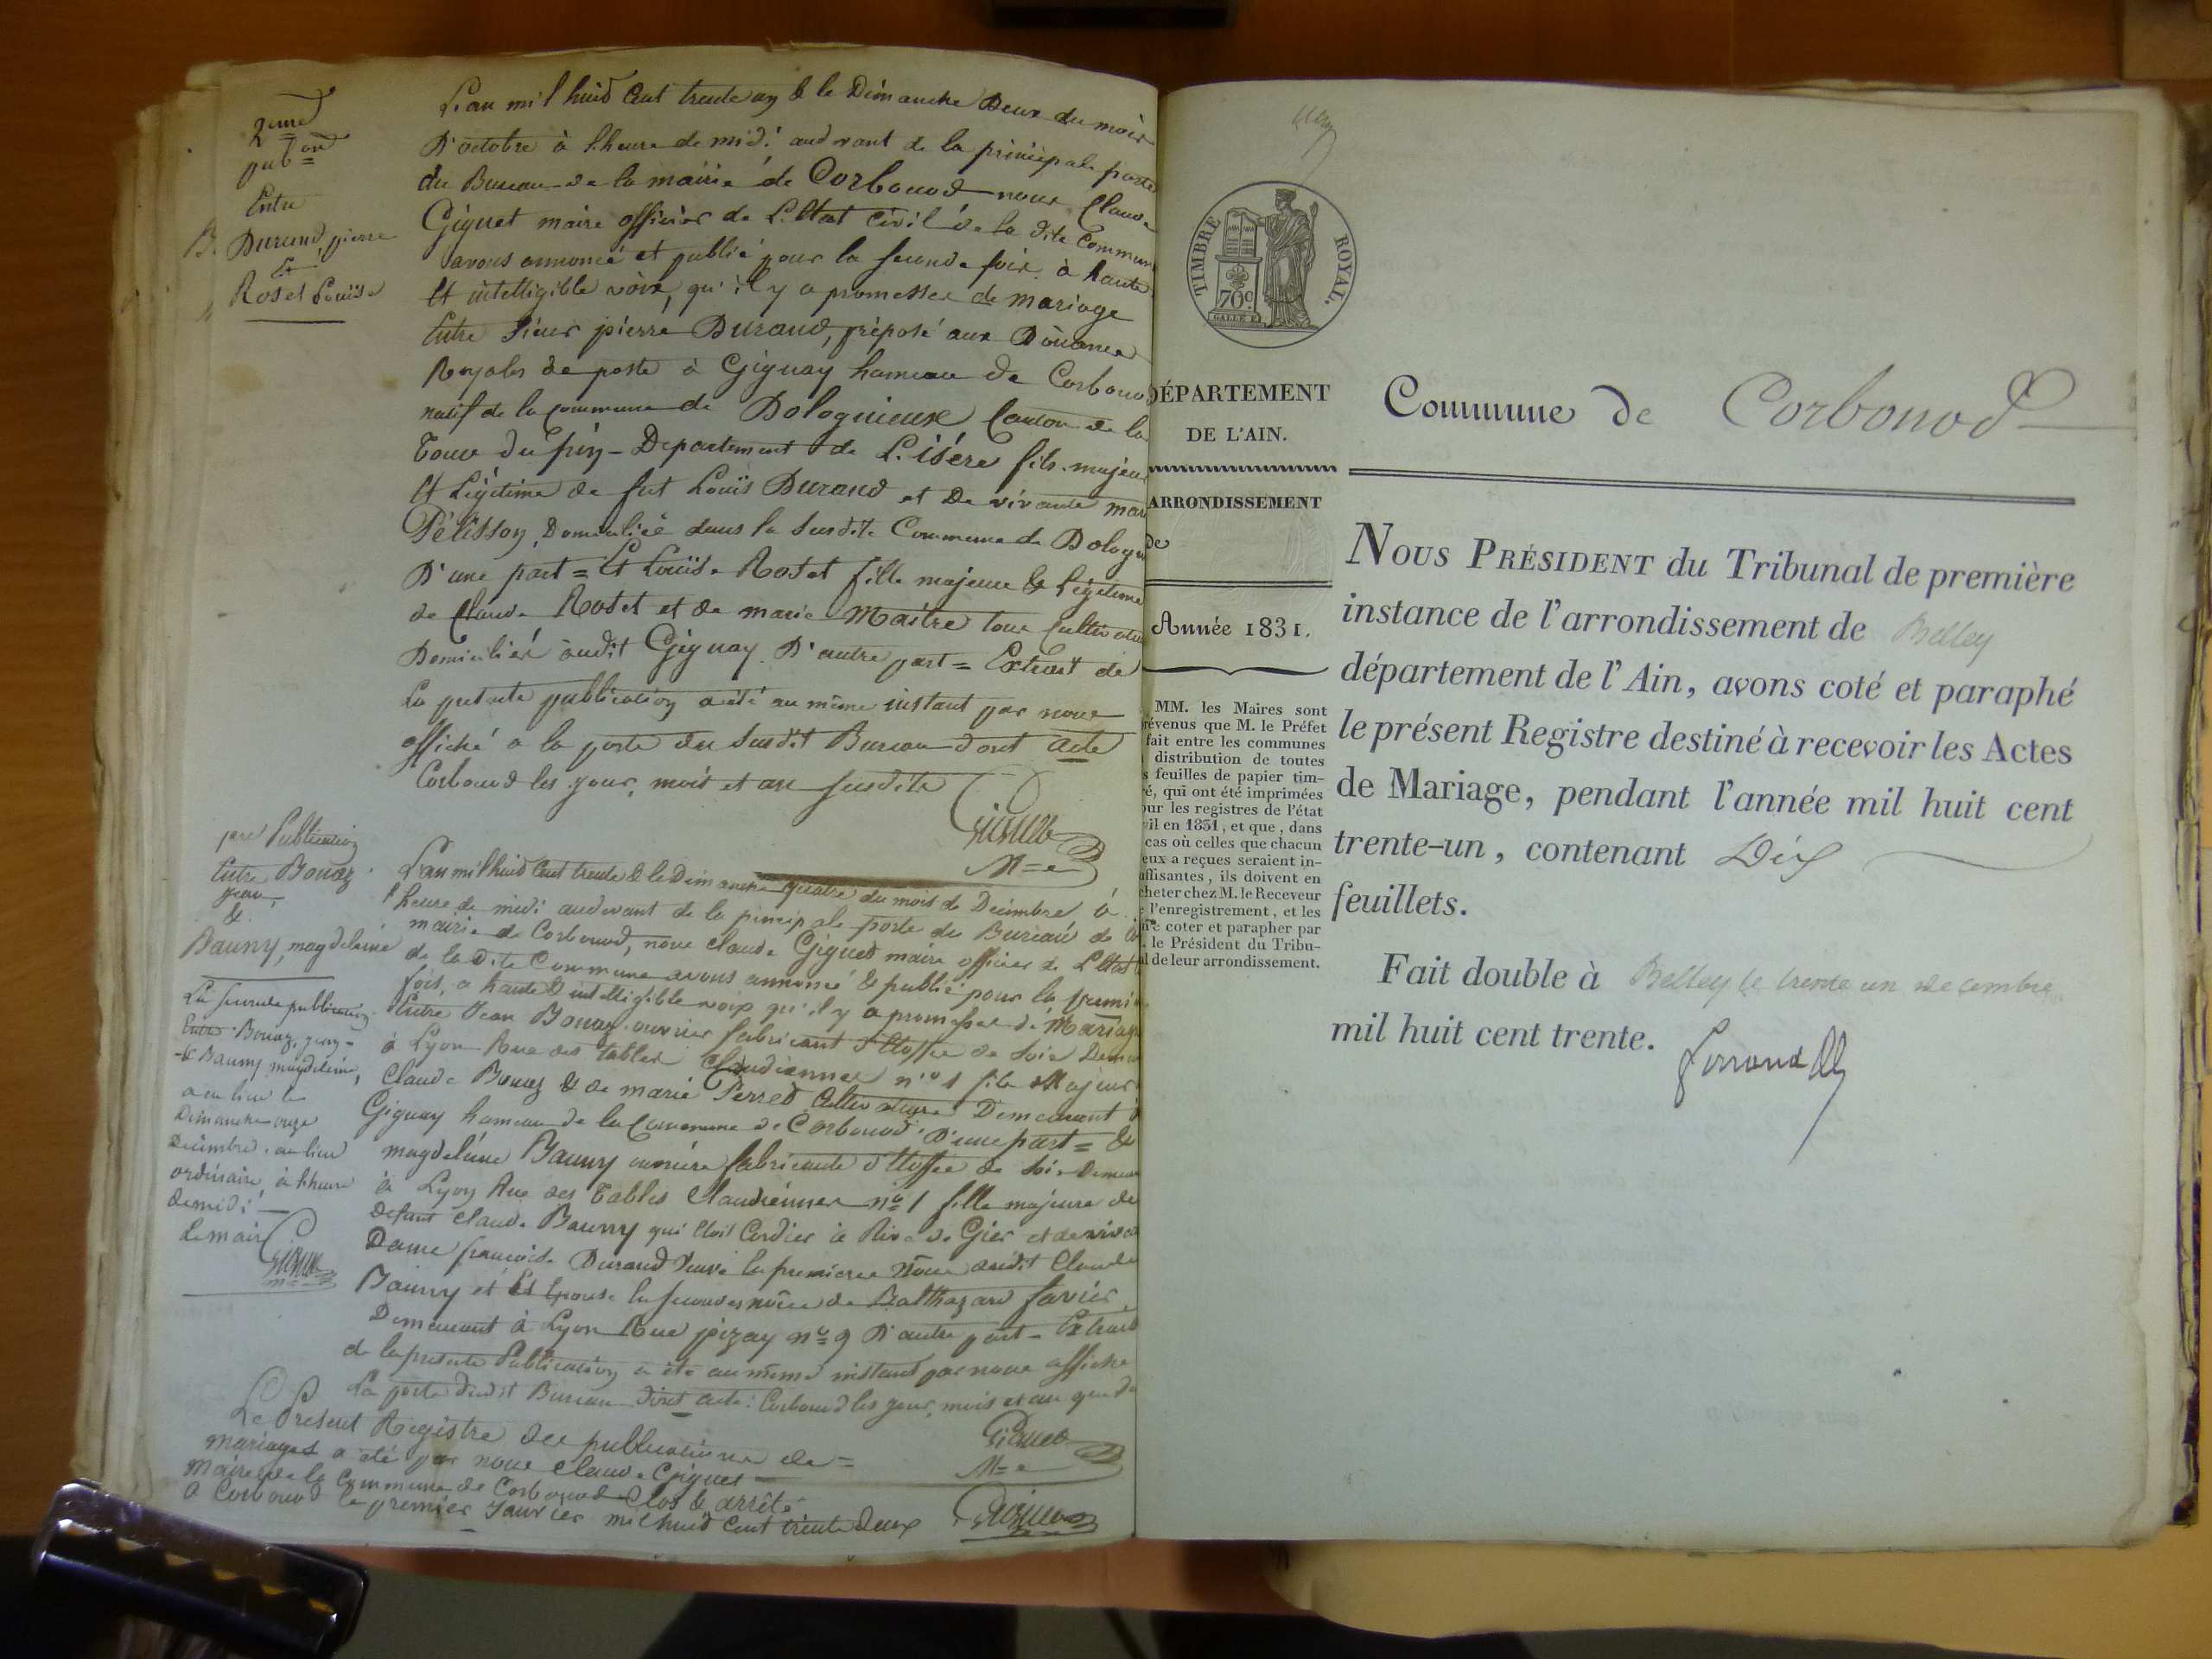 2eme
pubon
Entre
B. Durand, pierre
Et
Roset Louise
L'an mil huid Cent trente un & le Dimanche Deux du mois
D'octobre à L'heure de midi audevant de la principale porte
du Bureau de la mairie de Corbonod nous Claude
Giguet maire officier de L'Etat Civil de la dite Commun
avons annoncé et publié pour la seconde fois à haute
Et intelligible voix, qu'il y a promesses de mariage
Entre Sieur pierre Durand, préposé aux Douanes
Royales de poste à Gignay hameau de Corbono
natif de la Commune de Dologuieux Canton de la
Tour du pin - Departement de L'isére fils majeur
Et Légitime de feu Louis Durand et De vivante mar
Pélisson, Domiciliée dans la susdite Commune de Dologu
D'une part = Et Louise Roset fille majeure & Légitime
de Claude Roset et de marie Maitre tous Cultivateurs
Domiciliés audit Gignay. D'autre part = Extrait de
La presente publication a été au même instant par nous
affiché a la porte du susdit Bureau dont acte
Corbonod les jour, mois et an susdits
Giguet
M=e
1ere Publication
Entre Bouaz
jean,
&
Bauny, magdeleine
La seconde publication
Entre Bouaz, jean
& Bauny magdeleine,
a eu lieu le
Dimanche onze
Décembre. au lieu
ordinaire, à L'heure
de midi —
Le maire
Giguet
L'an mil huid Cent trente & le Dimanche quatre du mois de Décembre à
l'heure de midi audevant de la principale porte du Bureau de
mairie de Corbonod, nous Claude Giguet maire officier de L'Etat
de la Dite Commune avons annoncé & publié pour la premi
fois, a haute & intelligible voix qu'il y a promesse de Mariage
Entre Jean Bouaz ouvrier fabricant d'Etoffes de Soie Demeu
à Lyon Rue des tables Claudiennes n.o 1 fils Majeur
Claude Bouaz & de marie Perred Cultivateurs Demeurant à
Gignay hameau de la Commune de Corbonod. D'une part = &
magdeleine Bauny ouvriére fabricante d'Etoffes de Soie Demeu
à Lyon Rue des Tables Claudiennes no 1 fille majeure de
défunt Claude Bauny qui Etoit Cordier à Rive de Gier et de vivante
Dame françoise Durand Veuve En premieres Nôces dudit Claude
Bauny et Es Epouse En secondes nôces de Balthazard Favier
Demeurant à Lyon Rue pizay no 9 D'autre part - Extrait
de la presente Publication a été au même instant par nous affiché
La porte dudit Bureau dont acte: Corbonod les jour, mois et an que de
Giguet
M=e
Le Présent Registre des publications de =
mariages a été par nous Claude Giguet
Maire de la Commune de Corbonod Clos & arrêté
A Corbonod le premier Janvier mil huid Cent trente Deux
Giguet
TIMBRE ROYAL.
70c
GALLE F.
DÉPARTEMENT
DE L'AIN.
ARRONDISSEMENT
de
Année 1831.
MM. les Maires sont
révenus que M. le Préfet
fait entre les communes
distribution de toutes
s feuilles de papier tim-
é, qui ont été imprimées
our les registres de l'état
vil en 1831, et que, dans
cas où celles que chacun
eux a reçues seraient in-
uffisantes, ils doivent en
cheter chez M. le Receveur
e l'enregistrement, et les
ire coter et parapher par
. le Président du Tribu-
al de leur arrondissement.
Commune de Corbonod
NOUS PRÉSIDENT du Tribunal de première
instance de l'arrondissement de Belley
département de l'Ain, avons coté et paraphé
le présent Registre destiné à recevoir les Actes
de Mariage, pendant l'année mil huit cent
trente-un, contenant Dix
feuillets.
Fait double à Belley le trente un décembre
mil huit cent trente.